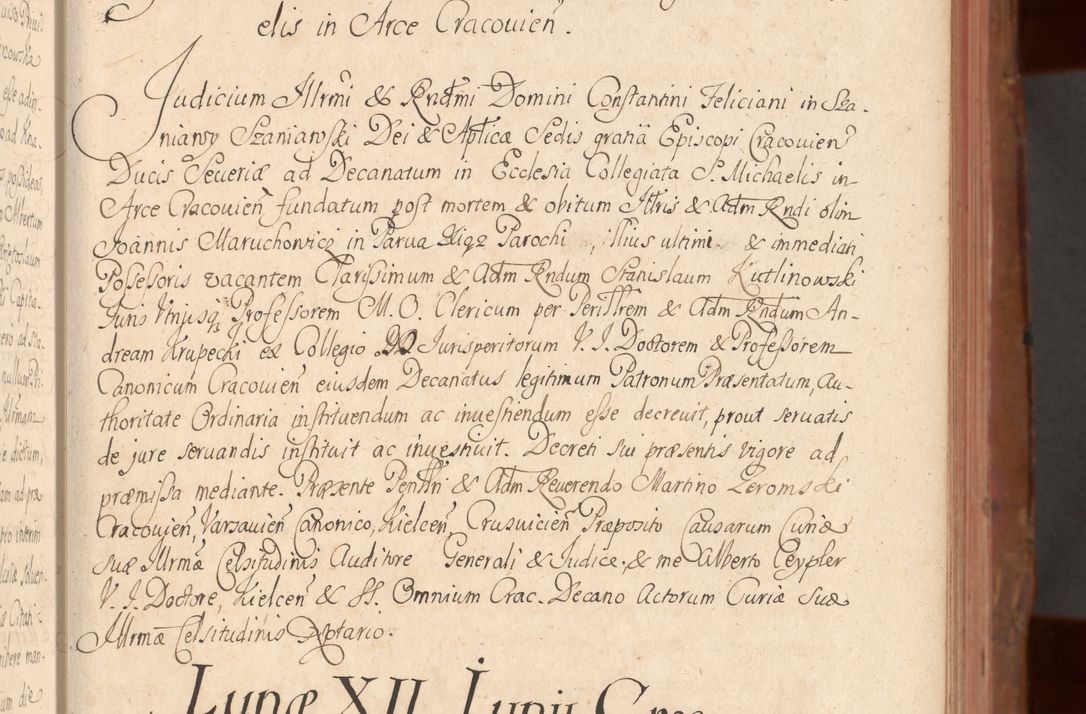 elis in Arce Cracovien̄.
Judicium Illrm̄i & Rndm̄i Domini Constantini Feliciani in Sza-
niawy Szaniawski Dei & Aplicæ Sedis gratiâ Episcopi Cracovien̄
Ducis Severiæ ad Decanatum in Ecclesia Collegiata S. Michaelis in
Arce Cracovien̄ fundatum post mortem & obitum Illris & Adm Rndi olim
Joannis Maruchowicz in Parva Parochi, illius ultimi & immediati
Possessoris vacantem Clarissimum & Adm Rndum Stanislaum Kutlinowski
Juris Utriusq Professorem M. O. Clericum per Perillrem & Adm Rndum An-
dream Krupecki ex Collegio Jurisperitorum V. J. Doctorem & Professorem
Canonicum Cracovien̄ eiusdem Decanatus legitimum Patronum Præsentatum, Au-
thoritate Ordinaria instituendum ac investiendum esse decrevit, prout servatis
de jure servandis instituit ac investivit. Decreti sui præsentis vigore ad
præmissa mediante. Præsente Perillri & Adm Reverendo Martino Zeromski
Cracovien̄, Varsavien̄ Canonico, Kielcen̄, Crusvicien̄ Præposito Causarum Curiæ
suæ Illrmæ Celsitudinis Auditore Generali & Judice, & me Alberto Ceypler
V. J. Doctore, Kielcen̄ & SS. Omnium Crac. Decano Actorum Curiæ Suæ
Illrmæ Celsitudinis Notario.
Lunæ XII Junii